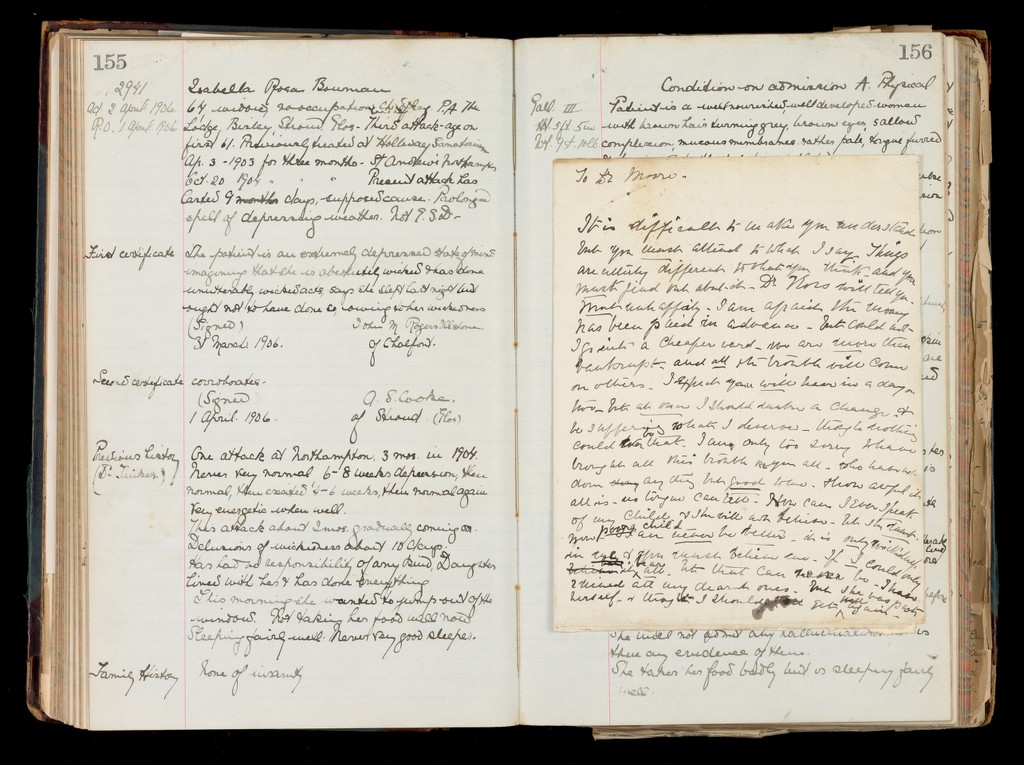 155
2941
Ad 2 April 1906
R.O. 1 April 1906
Isabella Rosa Bowman
64 widow, no occupation, Ch. of Eng. P.A. The
Lodge, Bisley, Stroud Glos - Third attack - age on
first 61. Previously treated at Holloway Sanatorium
Ap. 3 - 1903 for three months - St Andrew's Northampton
Oct. 20 1904 " " " Present attack has
lasted 9 months days, supposed cause. Prolonged
spell of depressing weather. Not E. S D -
First certificate
The patient is in an extremely depressed state of mind
imagining that she is absolutely wicked & has done
unutterably wicked acts, says she slept last night but
ought not to have done so, owing to her wickedness
(Signed) John M. Rogers
31 March 1906. of Chalford.
Second certificate
corroborates -
(Signed A. S. Cooke.
1 April 1906. of Stroud (Glos)
Previous history
(Dr. )
One attack at Northampton, 3 mos. in 1904.
Never very normal 6-8 weeks depression, then
normal, then excited 4-6 weeks, then normal again
Very energetic when well.
This attack about 2 mos. gradually coming on.
Delusions of wickedness about 10 days.
Has had no responsibility of any kind, Daughter
lived with her & has done everything
This morning she wanted to jump out of the
window. Not taking her food well now
Sleeping fairly well. Never very good sleeper.
Family History
None of insanity
156
Condition on admission A. Physical
Gall. III
Ht. 5 ft 5 in
Wt. 9 st. 10 lb
Patient is a well nourished well developed woman
with brown hair turning grey, brown eyes sallow
complexion, mucous membranes rather pale, tongue furred
To Dr Moore -
It is difficult to make you understand
but you must attend to what I say. Things
are utterly different to what you think and you
must find out about it - Dr will tell you.
I am afraid the money
has been paid in advance - but could not
I go into a cheaper ward - we are more than
bankrupt - and all the trouble will come
on others - I expect you will hear in a day or
two - but at once I should desire a change &
be suffering what I deserve - though nothing
could be that. I am only too sorry to have
brought all this trouble to you all - who have not
done any thing but good to me - & how awful it
all is - no tongue can tell - How can I ever speak
of my child & she will not believe - but she must
poor child
I can never be better - it is only wickedness
in me & you must believe me - If I could only
all - but that can never be - I have
ruined all my dear ones. But she was
herself - & though I should
She will not admit any hallucinations nor is
there any evidence of them.
She takes her food badly but is sleeping fairly
well.